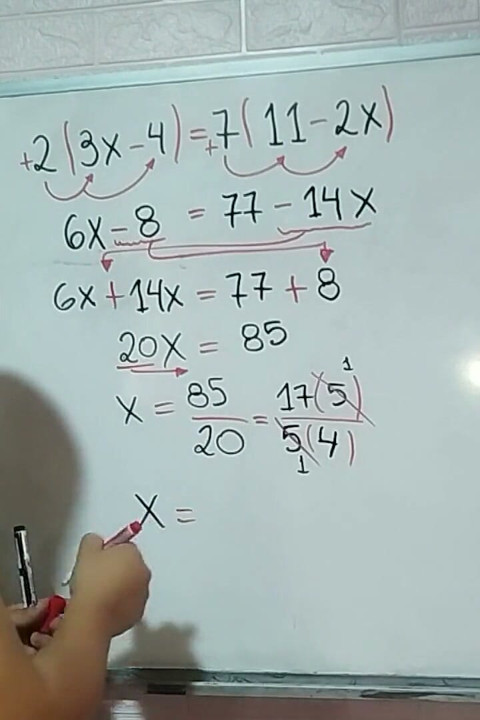 +2(3x-4)=+7(11-2x)
6x-8 = 77-14x
6x+14x = 77+8
20x = 85
x = 85/20 = 17(5)1/5(4)1
x =